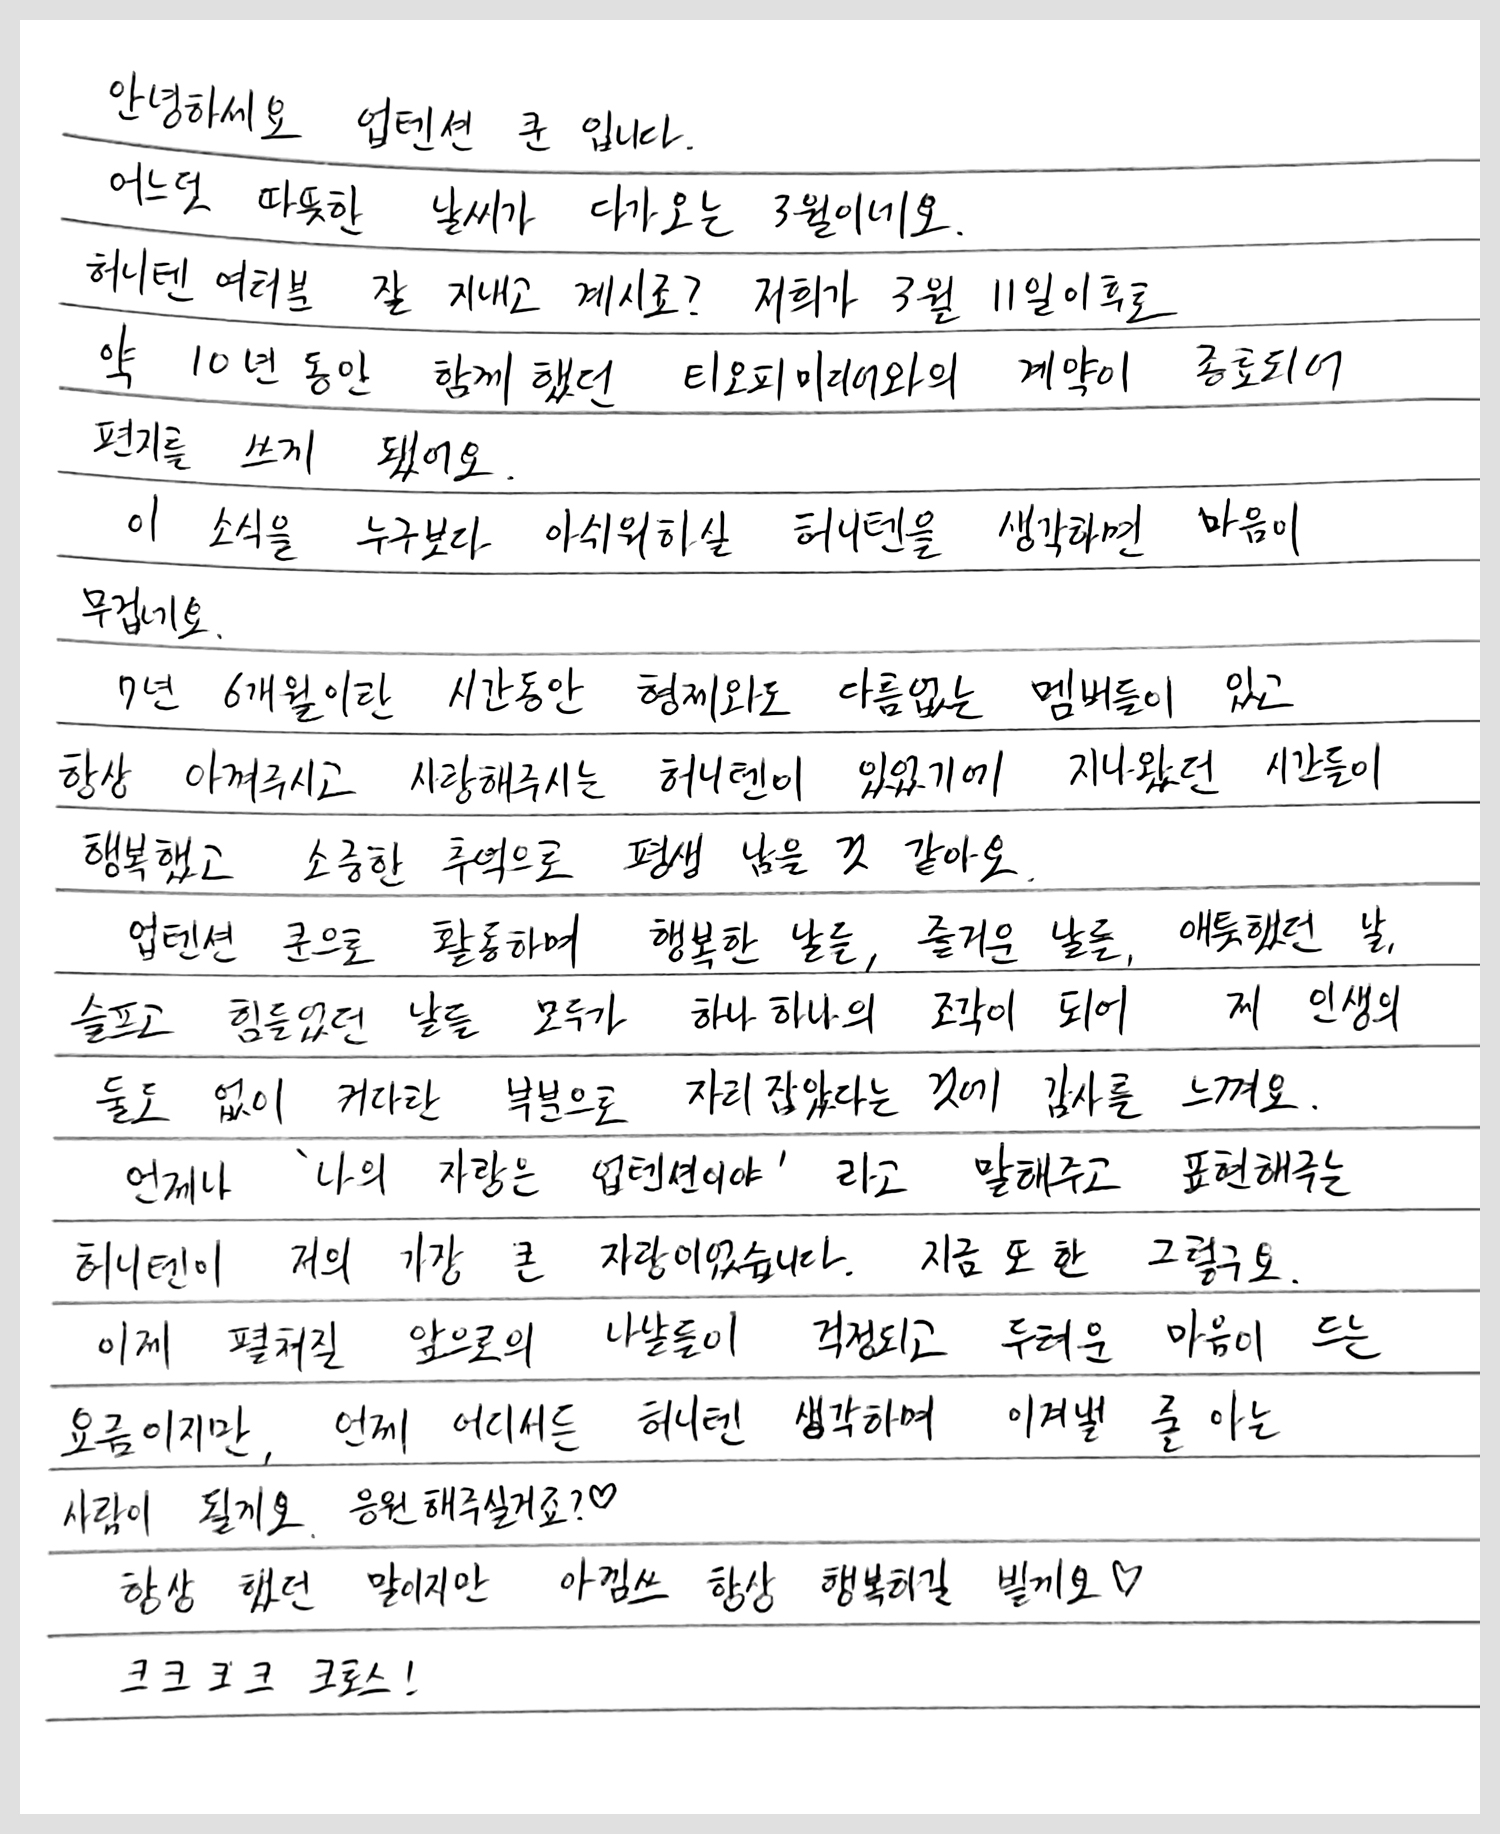 안녕하세요 업텐션 쿤 입니다.
어느덧 따뜻한 날씨가 다가오는 3월이네요.
허니텐 여러분 잘 지내고 계시죠? 저희가 3월 11일이후로
약 10년 동안 함께 했던 티오피 미디어와의 계약이 종료되어
편지를 쓰게 됐어요.
이 소식을 누구보다 아쉬워하실 허니텐을 생각하면 마음이
무겁네요.
7년 6개월이란 시간동안 형제와도 다름없는 멤버들이 있고
항상 아껴주시고 사랑해주시는 허니텐이 있었기에 지나왔던 시간들이
행복했고 소중한 추억으로 평생 남을 것 같아요.
업텐션 쿤으로 활동하며 행복한 날들, 즐거운 날들, 애틋했던 날,
슬프고 힘들었던 날들 모두가 하나 하나의 조각이 되어 제 인생의
둘도 없이 커다란 부분으로 자리 잡았다는 것에 감사를 느껴요.
언제나 '나의 자랑은 업텐션이야' 라고 말해주고 표현해주는
허니텐이 저의 가장 큰 자랑이었습니다. 지금 또 한 그렇구요.
이제 펼쳐질 앞으로의 나날들이 걱정되고 두려운 마음이 드는
요즘이지만, 언제 어디서든 허니텐 생각하며 이겨낼 줄 아는
사람이 될게요. 응원 해주실거죠?♡
항상 했던 말이지만 아낌쓰 항상 행복하길 빌게요♡
크크크크 크로스!